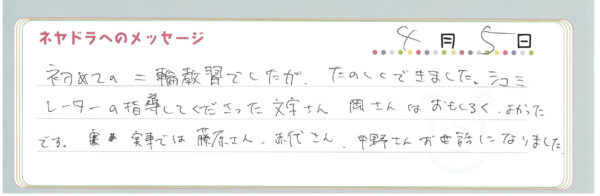 ネヤドラへのメッセージ
4月5日
初めての二輪教習でしたが、たのしくできました。シュミ
レーターの指導してくださった文字さん 岡さんはおもしろく、よかった
です。実車では藤原さん、赤代さん、甲野さんお世話になりました。